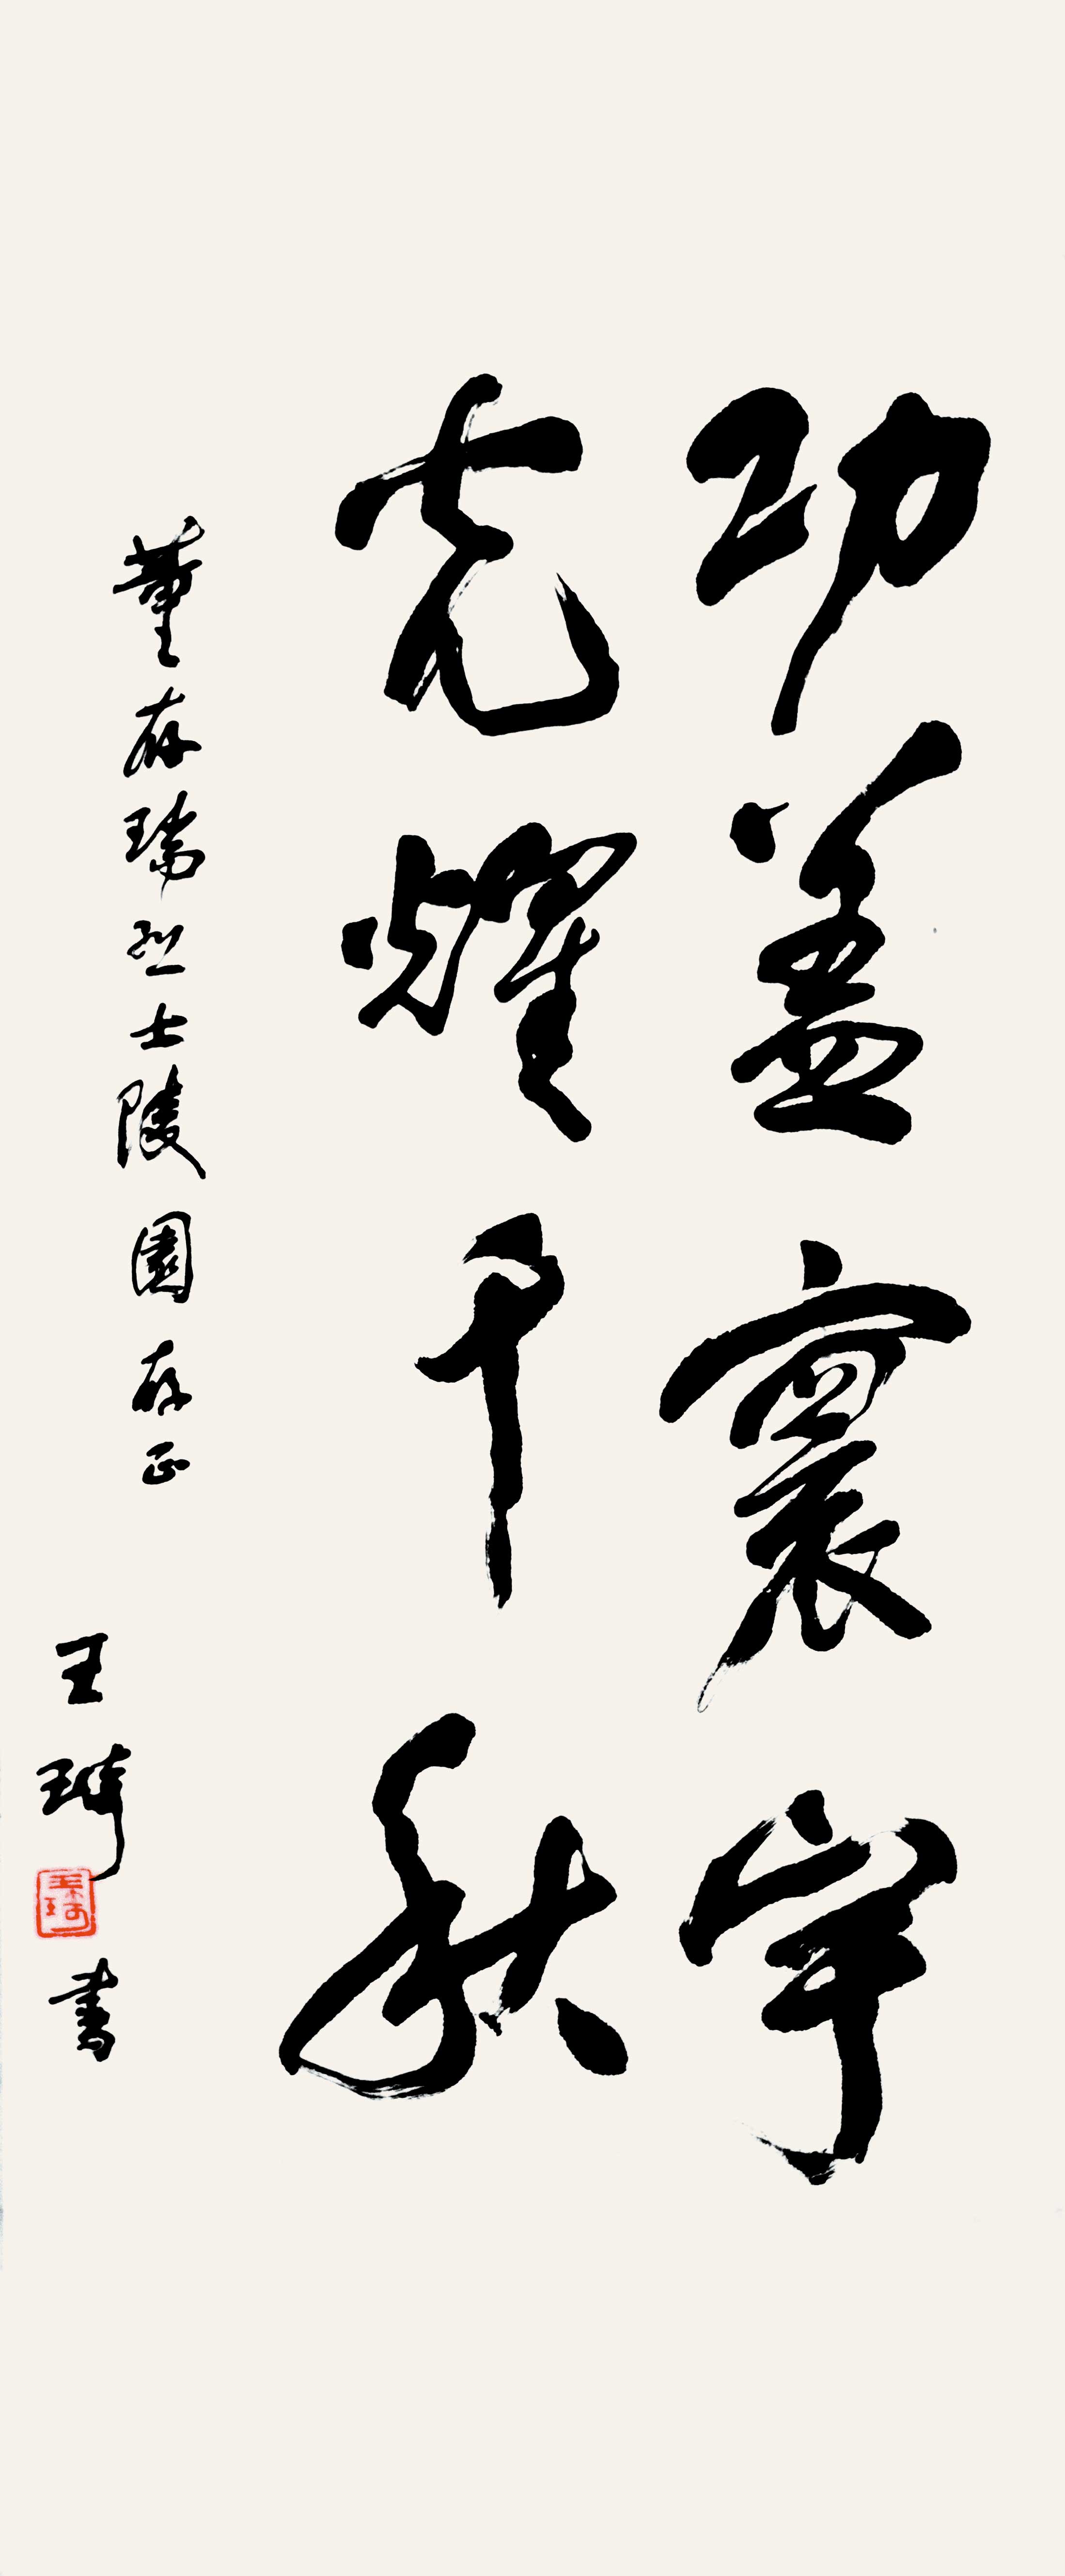 功盖寰宇
光耀千秋
董存瑞烈士陵園存正
王琦書
王琦